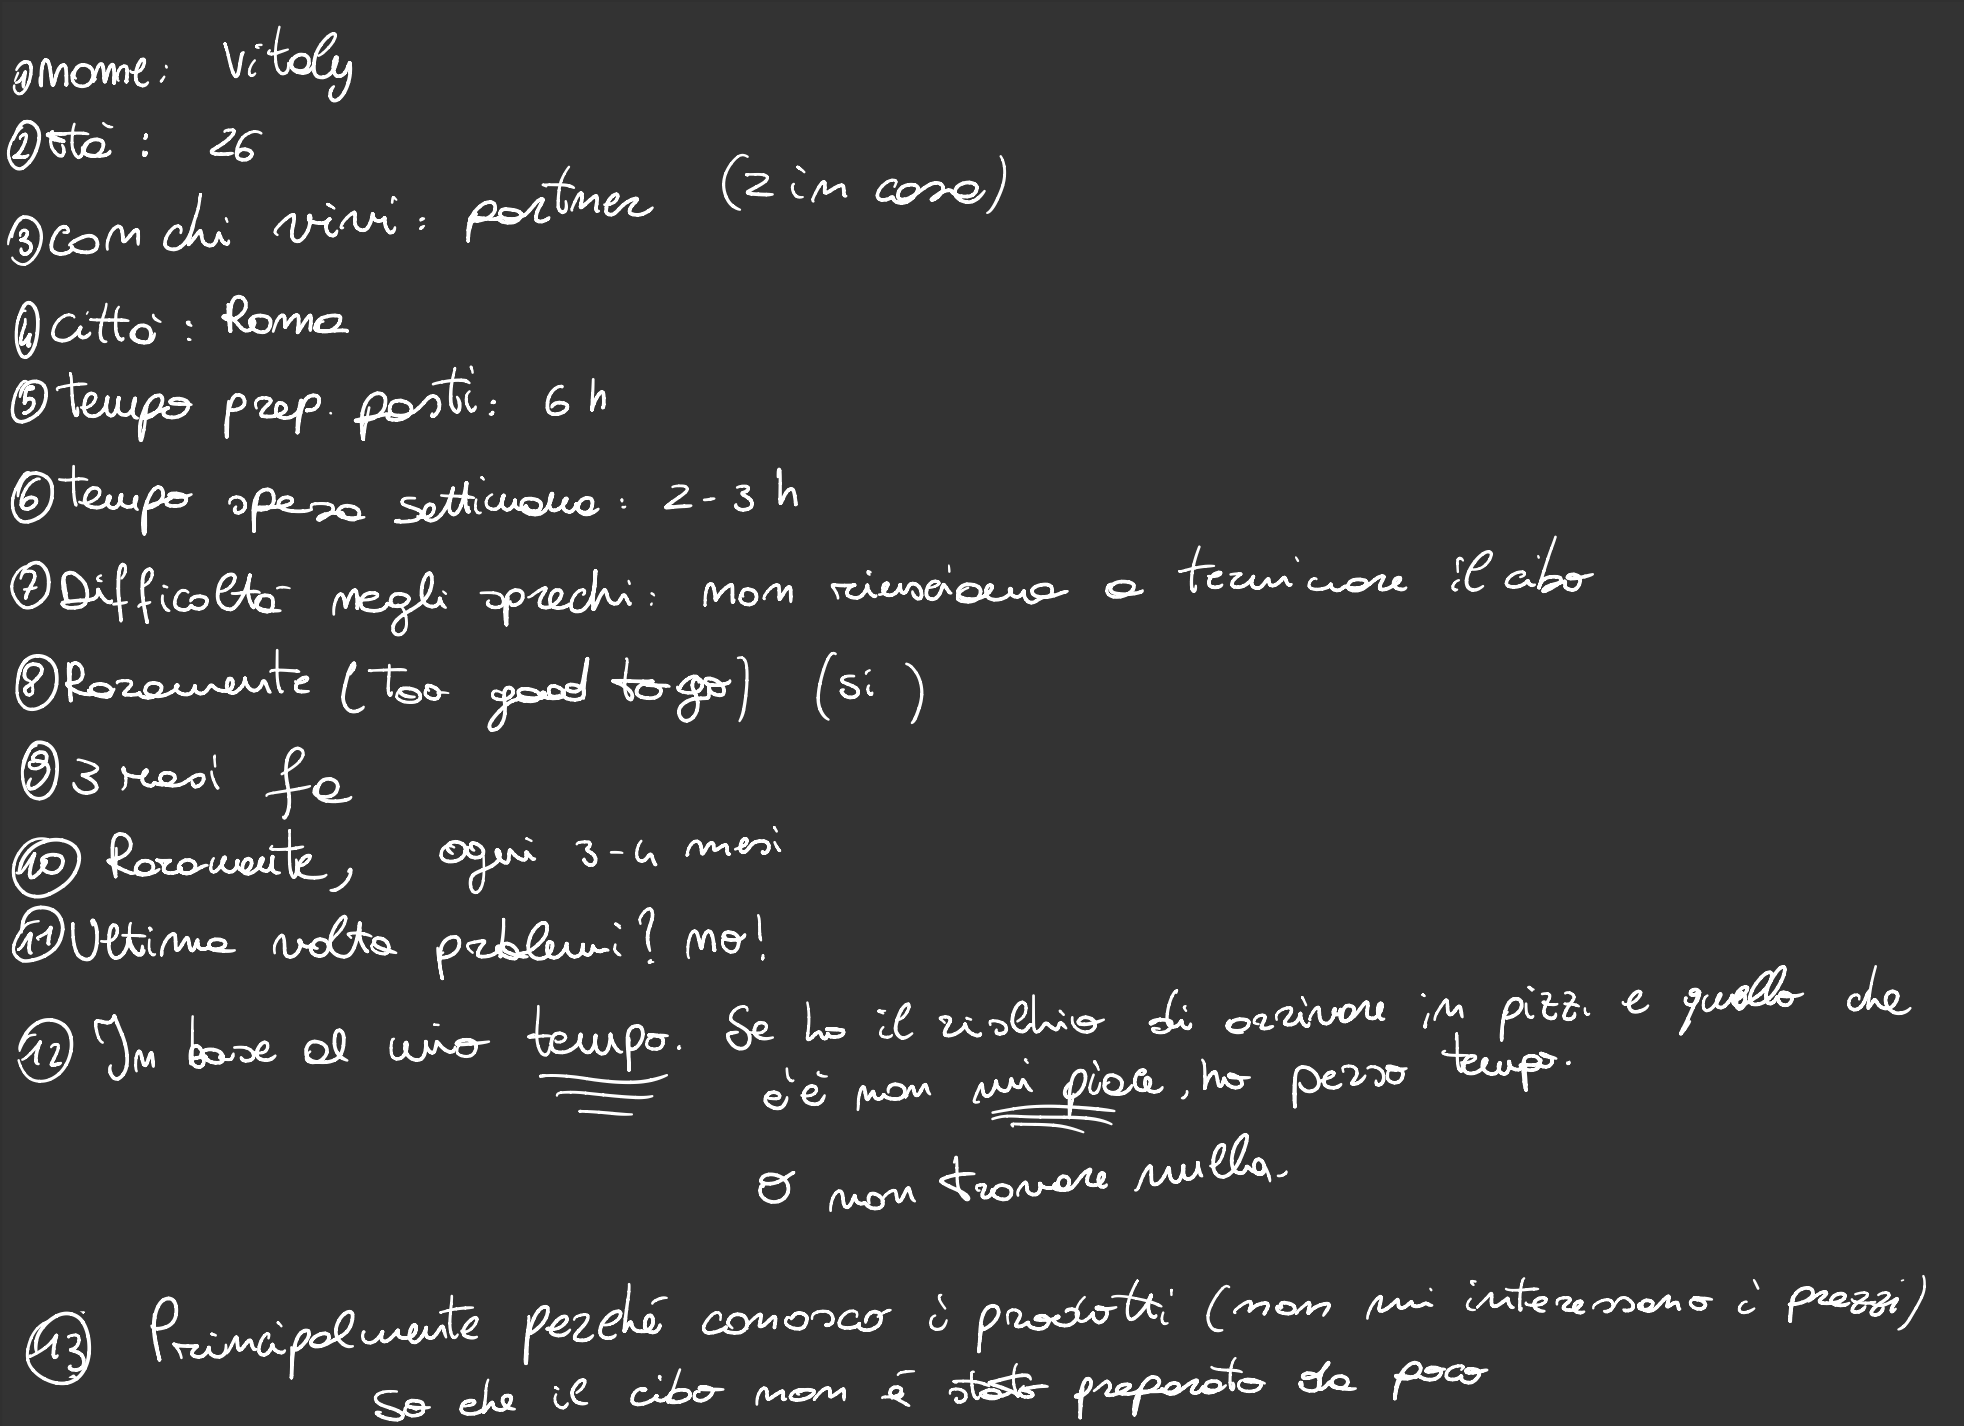 ① nome: Vitaly
② età: 26
③ con chi vivi: partner (2 in casa)
④ città: Roma
⑤ tempo prep. pasti: 6 h
⑥ tempo spesa settimana: 2-3 h
⑦ Difficoltà negli sprechi: non riusciamo a terminare il cibo
⑧ Raramente (Too good to go) (si)
⑨ 3 mesi fa
⑩ Raramente, ogni 3-4 mesi
⑪ Ultima volta problemi? no!
⑫ In base al mio tempo. Se ho il rischio di arrivare in pizz. e quello che
c'è non mi piace, ho perso tempo.
o non trovare nulla.
⑬ Principalmente perché conosco i prodotti (non mi interessano i prezzi)
So che il cibo non è stato preparato da poco